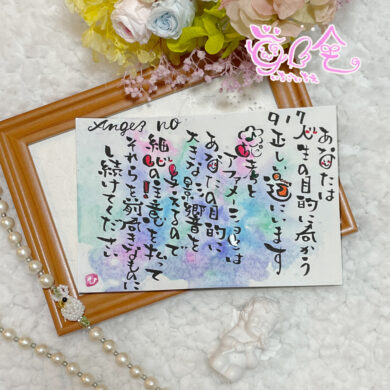 Angel no
917
あなたは
人生の目的に向かう
正しい道にいます
思考と
アファメーションは
あなたの目的に
大きな影響を
与えるので
細心の注意を払って
それらを前向きなものに
し続けてください